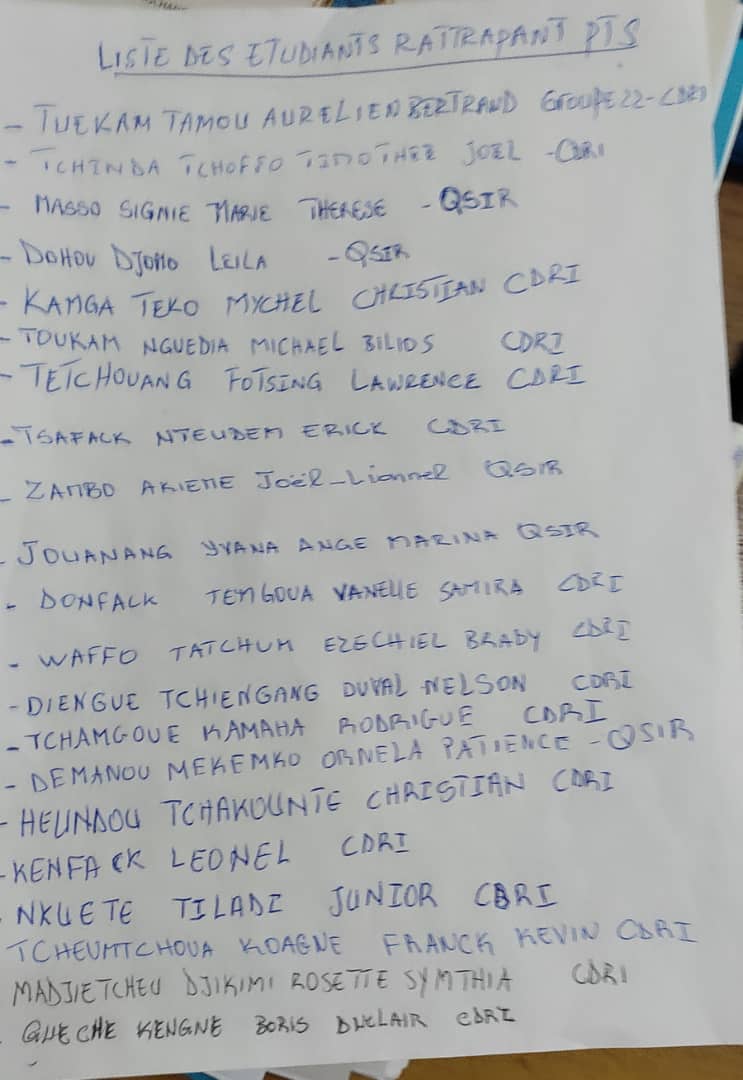 LISTE DES ETUDIANTS RATTRAPANT PTS
- TUEKAM TAMOU AURELIEN BERTRAND GROUPE 22 - CDRI
- TCHINDA TCHOFFO TIMOTHEE JOEL - CDRI
- MASSO SIGNIE MARIE THERESE - QSIR
- DOHOU DJOMO LEILA - QSIR
- KAMGA TEKO MYCHEL CHRISTIAN CDRI
- TOUKAM NGUEDIA MICHAEL BILIOS CDRI
- TETCHOUANG FOTSING LAWRENCE CDRI
- TSAFACK NTEUDEM ERICK CDRI
- ZAMBO AKIEME Joël-Lionnel QSIR
- JOUANANG YVANA ANGE MARINA QSIR
- DONFACK TEMGOUA VANELLE SAMIRA CDRI
- WAFFO TATCHUM EZECHIEL BRADY CDRI
- DIENGUE TCHIENGANG DUVAL NELSON CDRI
- TCHAMGOUE KAMAHA RODRIGUE CDRI
- DEMANOU MEKEMKO ORNELA PATIENCE - QSIR
- HEUNDOU TCHAKOUNTE CHRISTIAN CDRI
- KENFACK LEONEL CDRI
NKUETE TILADI JUNIOR CDRI
TCHEUMTCHOUA KOAGNE FRANCK KEVIN CDRI
MADJIETCHEU DJIKIMI ROSETTE SYMTHIA CDRI
- GUECHE KENGNE BORIS DUCLAIR CDRI